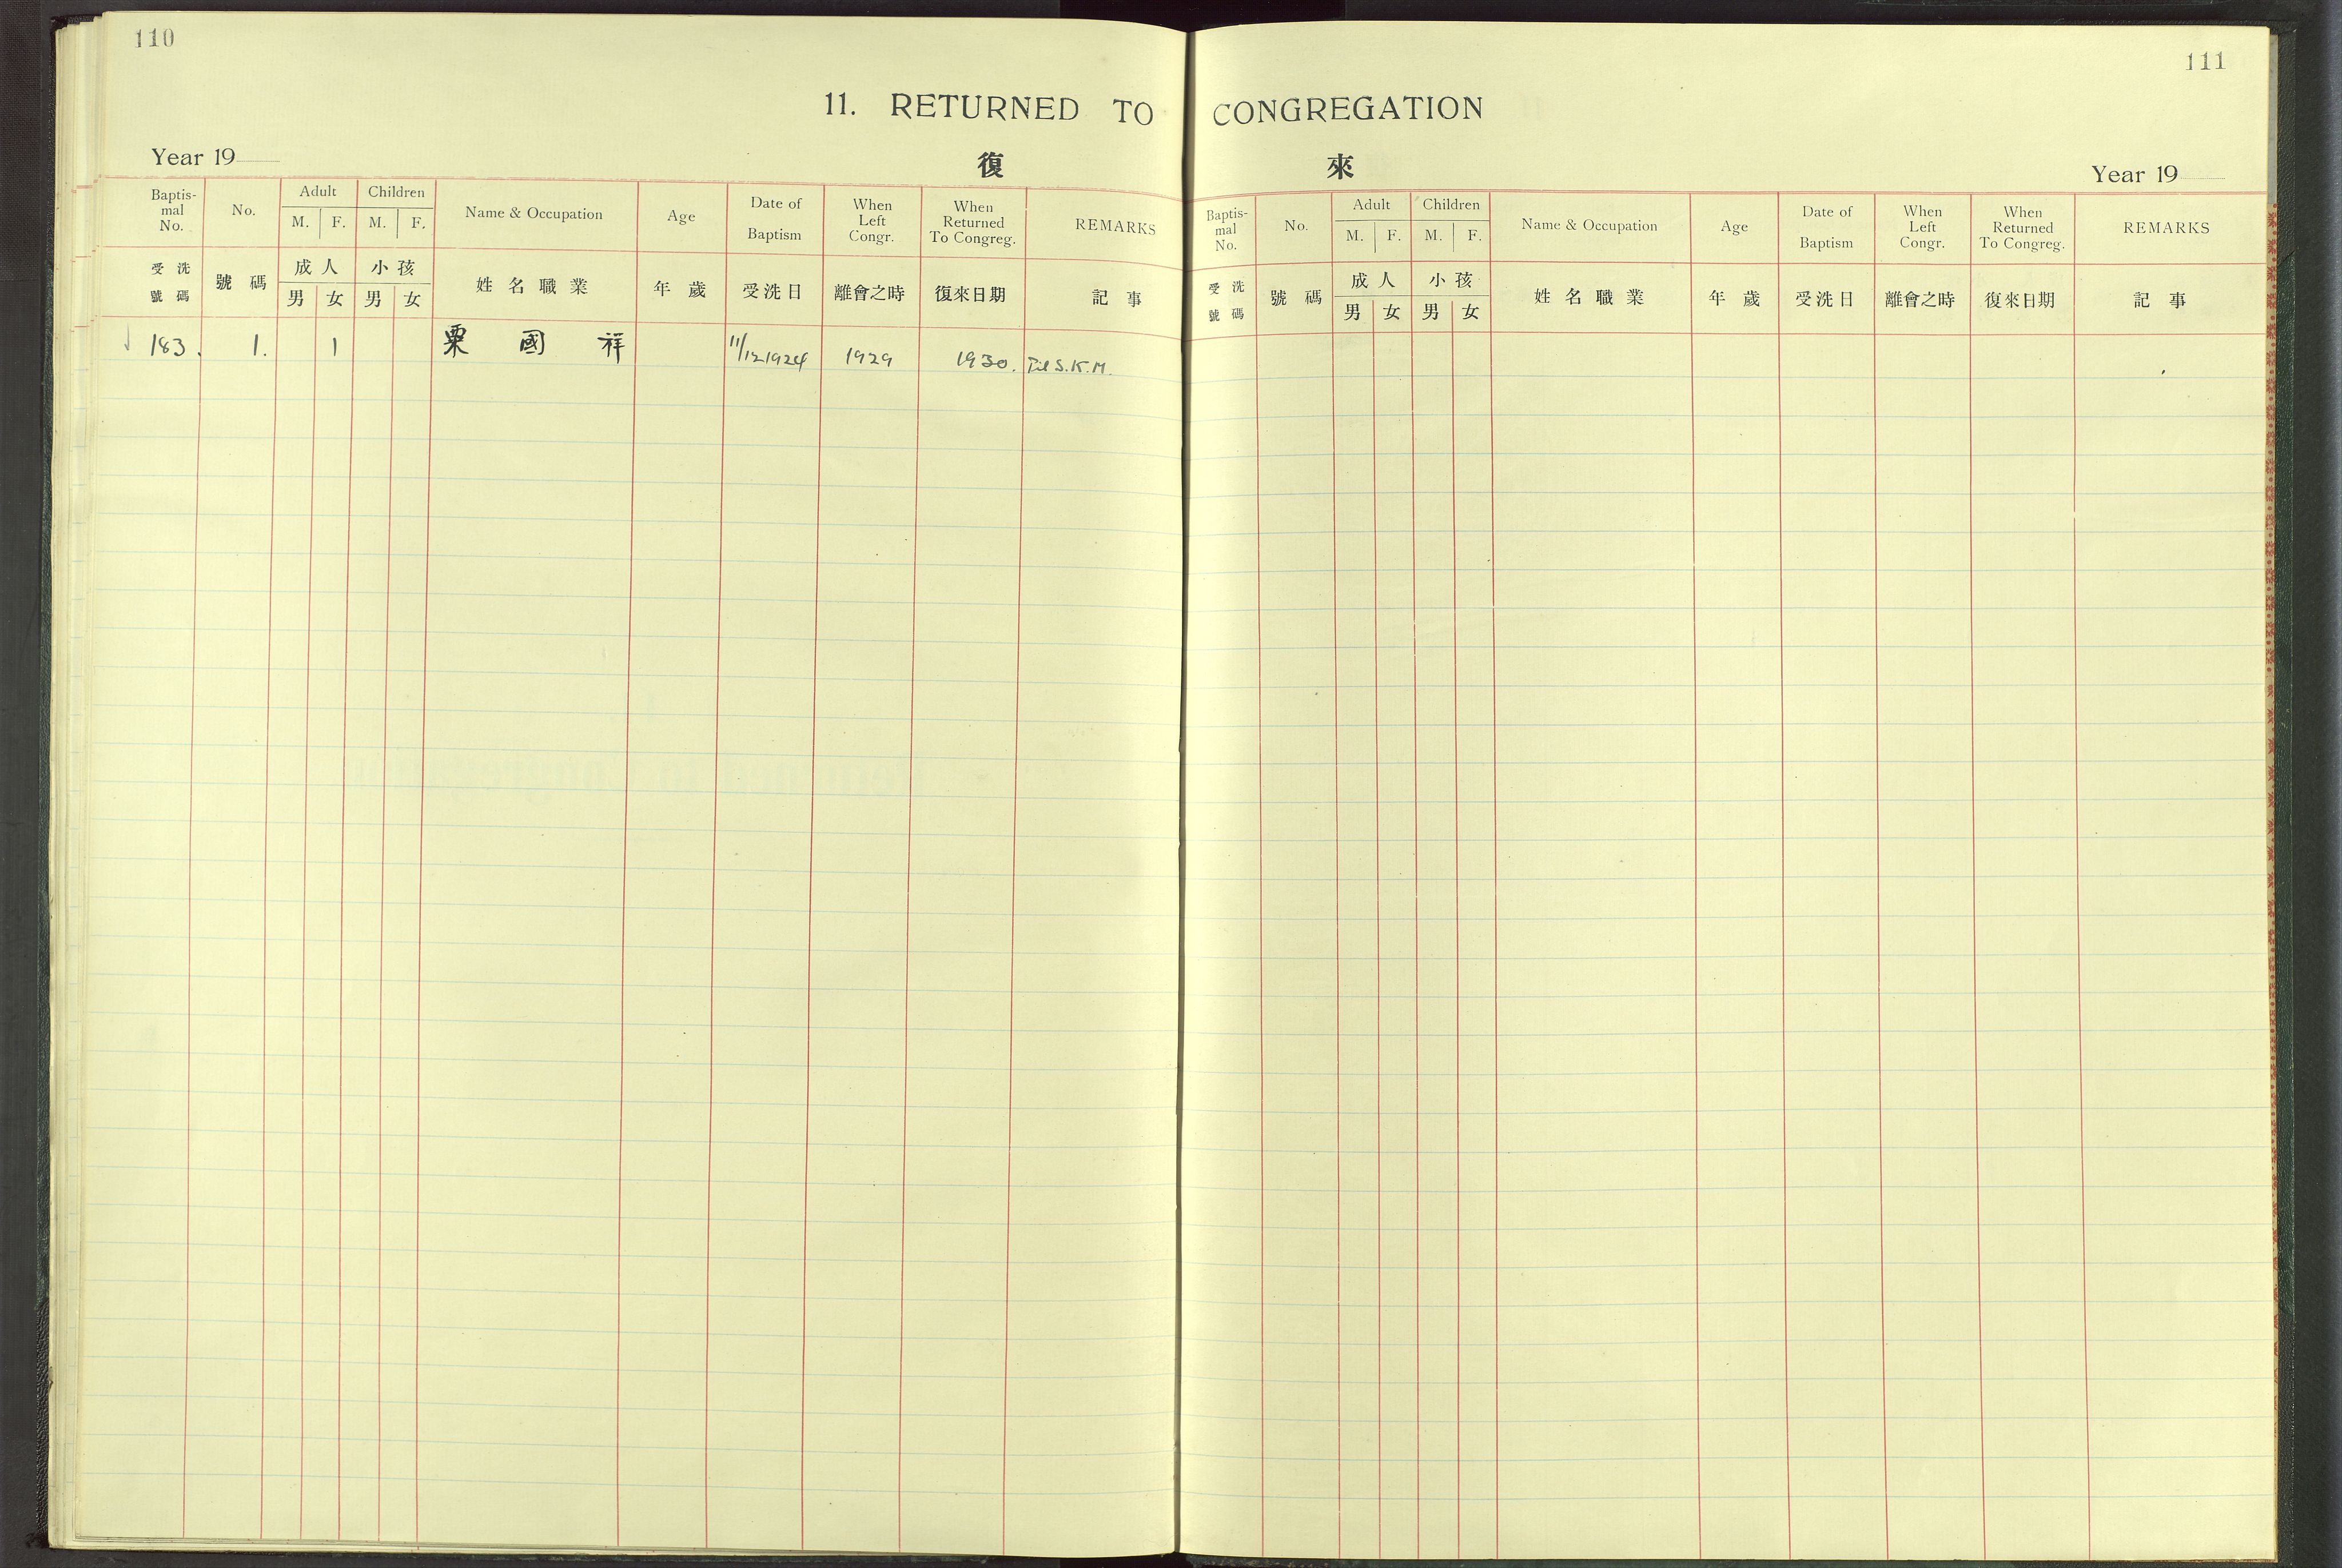 110
111
11. RETURNED TO CONGREGATION
Year 19
復 來
Year 19
Baptis-mal No. No. Adult M. F. Children M. F. Name & Occupation Age Date of Baptism When Left Congr. When Returned To Congreg. REMARKS
受洗號碼 號碼 成人 男 女 小孩 男 女 姓名職業 年歲 受洗日 離會之時 復來日期 記事
183. 1. 1 粟國祥 11/12 1924 1929 1930. Til S.K.M.
Baptis-mal No. No. Adult M. F. Children M. F. Name & Occupation Age Date of Baptism When Left Congr. When Returned To Congreg. REMARKS
受洗號碼 號碼 成人 男 女 小孩 男 女 姓名職業 年歲 受洗日 離會之時 復來日期 記事